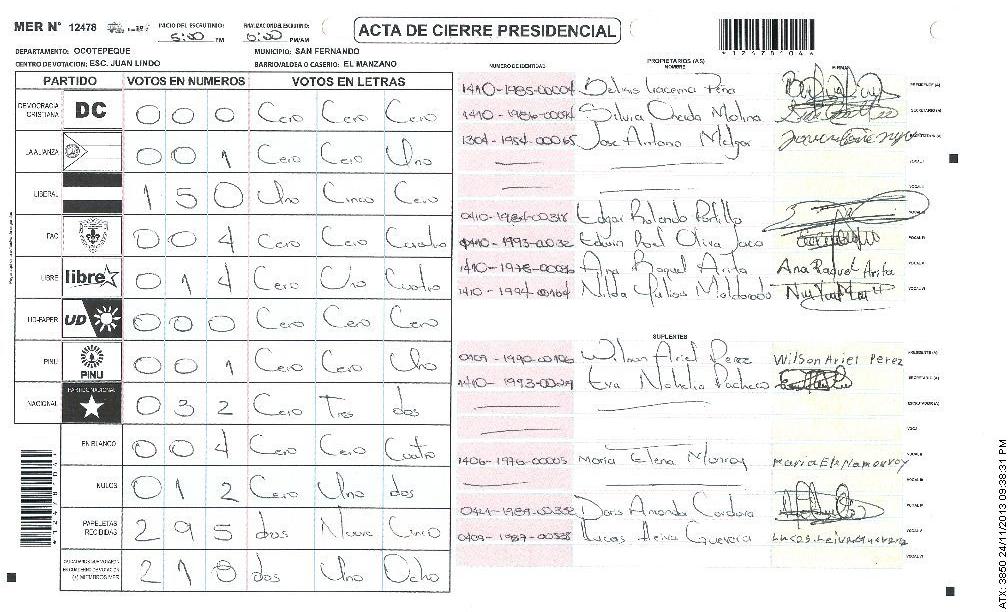 MER N° 12478
INICIO DEL ESCRUTINIO: 5:00 PM
FINALIZACION DEL ESCRUTINIO: 6:00 PM/AM
ACTA DE CIERRE PRESIDENCIAL
*12478404*
DEPARTAMENTO: OCOTEPEQUE
MUNICIPIO: SAN FERNANDO
CENTRO DE VOTACION: ESC. JUAN LINDO
BARRIO/ALDEA O CASERIO: EL MANZANO
PARTIDO VOTOS EN NUMEROS VOTOS EN LETRAS
DEMOCRACIA CRISTIANA DC 0 0 0 Cero Cero Cero
LA ALIANZA 0 0 1 Cero Cero Uno
LIBERAL 1 5 0 Uno Cinco Cero
PAC 0 0 4 Cero Cero Cuatro
LIBRE libre 0 1 4 Cero Uno Cuatro
UD-FAPER UD 0 0 0 Cero Cero Cero
PINU PINU 0 0 1 Cero Cero Uno
NACIONAL PARTIDO NACIONAL 0 3 2 Cero Tres dos
EN BLANCO 0 0 4 Cero Cero Cuatro
NULOS 0 1 2 Cero Uno dos
PAPELETAS RECIBIDAS 2 9 5 dos Nueve Cinco
CIUDADANOS QUE VOTARON EN CUADERNO DE VOTACION (+) MIEMBROS MER 2 1 8 dos Uno Ocho
NUMERO DE IDENTIDAD PROPIETARIOS (AS) NOMBRE FIRMAS
1410-1985-00004 Iracema Peña PRESIDENTE (A)
Silvia Molina SECRETARIO (A)
1304-1954-00065 Jose Antonio Melgar
VOCAL I
VOCAL II
Edgar Rolando Portillo
Edwin Noel Oliva
Ana Raquel Arita Ana Raquel Arita
1410-1994-00164 Nilda Maldonado VOCAL VI
SUPLENTES
Wilson Ariel Perez Wilson Ariel Perez PRESIDENTE (A)
Eva Natalia Pacheco SECRETARIO (A)
ESCRUTADOR (A)
VOCAL I
1406-1976-00005 Maria Elena Monroy Maria Elena monrroy VOCAL II
VOCAL III
Amanda Cardona VOCAL IV
Lucas Leiva Guevara Lucas.Leiva Guevara VOCAL V
VOCAL VI
ATX: 3850 24/11/2013 09:38:31 PM